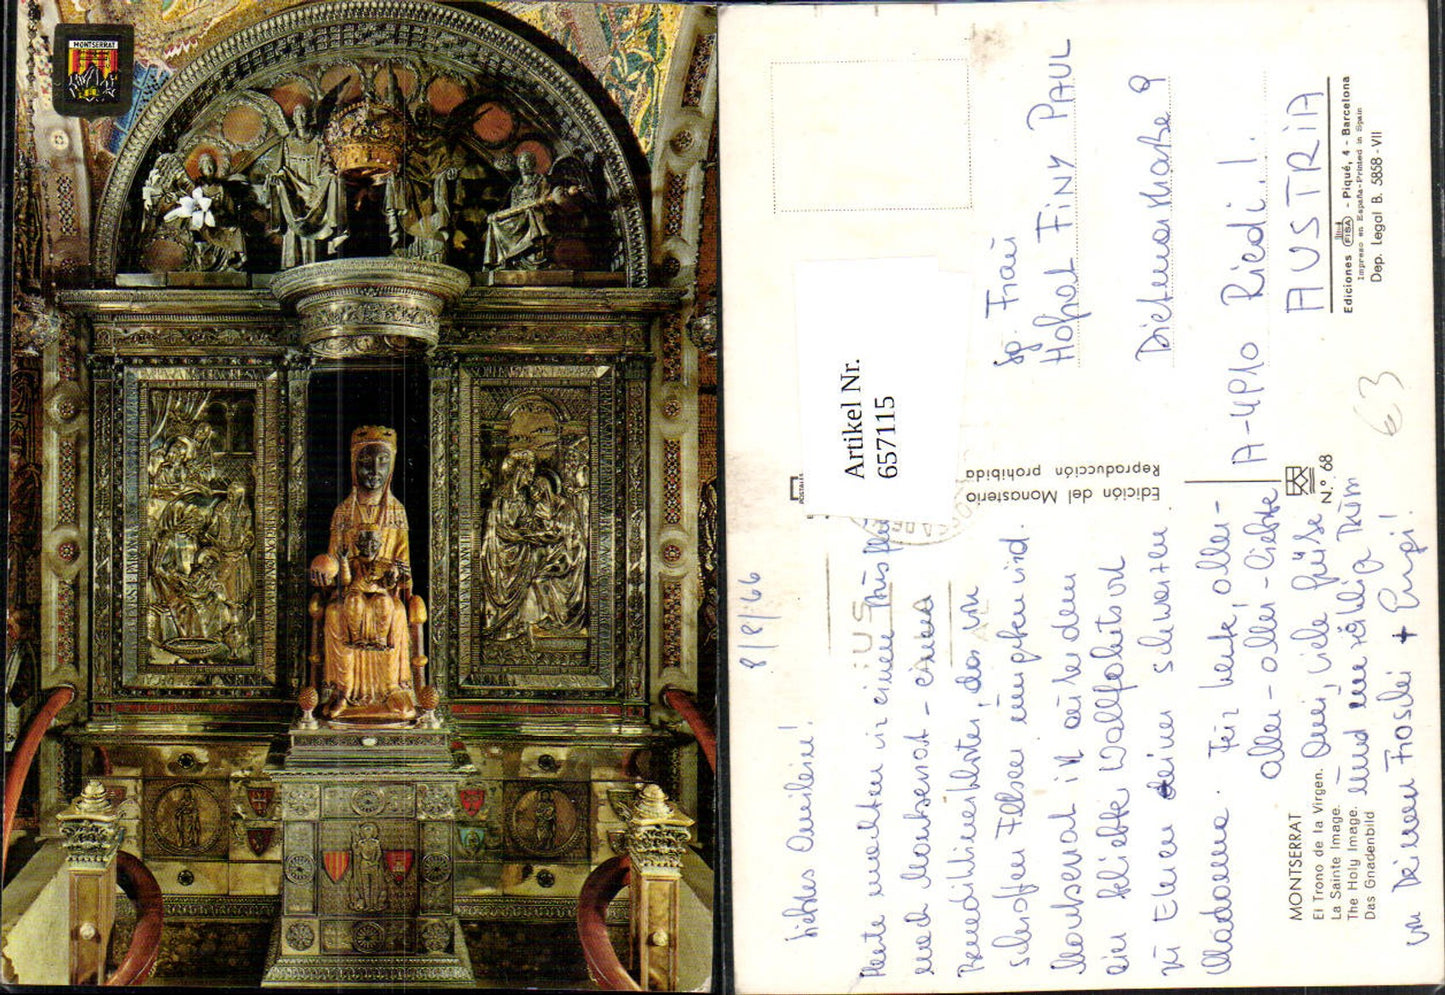 MONTSERRAT
8/8/66
Liebstes Omilein!
Heute machten wir einen Ausflug
nach Montserrat - einem
Benediktinerkloster, das von
schroffen Felsen umgeben wird.
Montserrat ist außerdem
ein beliebter Wallfahrtsort
zu Ehren seiner schwarzen
Madonna. Für heute, aller-
aller-aller-liebste
Omi, viele Grüße
und
von Deinen Froschi + Purpi!
MONTSERRAT
El Trono de la Virgen.
La Sainte Image.
The Holy Image.
Das Gnadenbild
POSTALES
Edición del Monasterio
Reproducción prohibida
N.° 68
Artikel Nr.
657115
Frau
Hofrat FINY PAUL
Dietmarstraße 9
A-4910 Riedi.I.
AUSTRIA
63
Ediciones FISA - Piqué, 4 - Barcelona
Impreso en España-Printed in Spain
Dep. Legal B. 5858-VII